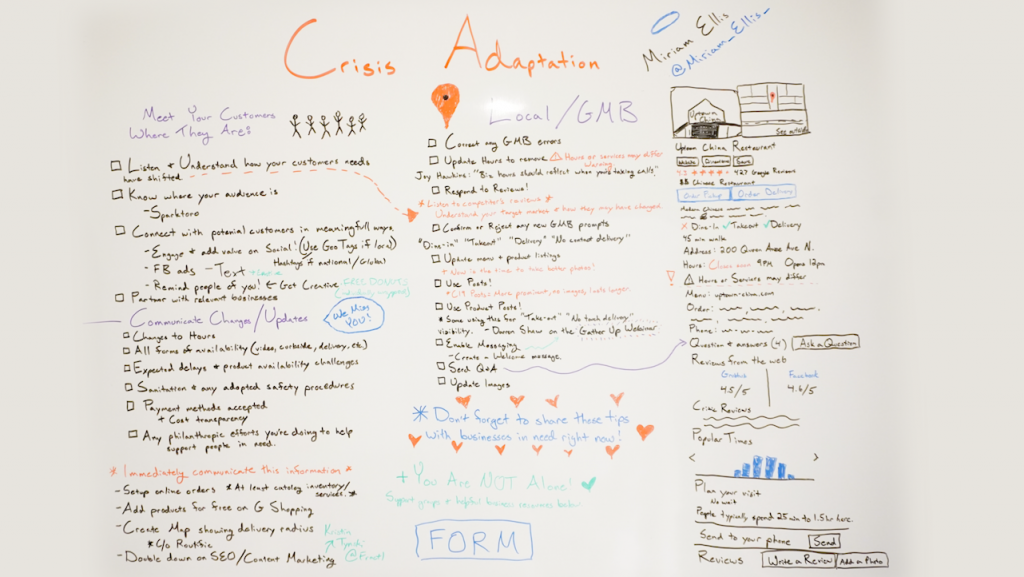 Crisis Adaptation
Miriam Ellis
@Miriam_Ellis_
Meet Your Customers
Where They Are:
Listen & Understand how your customers needs
have shifted
Know where your audience is
- Sparktoro
Connect with potenial customers in meaningfull ways.
- Engage & add value on Social! (Use GeoTags if local)
Hashtags if national/Global
- FB ads - Text
- Remind people of you! ← Get Creative
FREE DONUTS
Partner with relevant businesses
Communicate Changes/Updates
We Miss
YOU!
Changes to Hours
All forms of availability (video, curbside, delivery, etc.)
Expected delays & product availability challenges
Sanitation & any adopted safety procedures
Payment methods accepted
+ Cost transparency
Any philanthropic efforts you're doing to help
support people in need.
* Immediately communicate this information *
- Setup online orders * At least catalog inventory/
services. *
- Add products for free on G Shopping
- Create Map showing delivery radius
* C/o Routific
- Double down on SEO/Content Marketing
Kristin
Tynski
Local/GMB
Correct any GMB errors
Update Hours to remove ⚠ Hours or services may differ
Warning
Joy Hawkins: "Biz hours should reflect when you're taking calls"
Respond to Reviews!
* Listen to competitor's reviews *
Understand your target market & how they may have changed.
Confirm or Reject any new GMB prompts
"Dine-in" "Takeout" "Delivery" "No contact delivery"
Update menu & product listings
+ Now is the time to take better photos!
Use Posts!
* C19 Posts: More prominent, no images, lasts longer.
Use Product Posts!
* Some using this for "Take-out" "No touch delivery"
visibility. - Darren Shaw on the Gather Up Webinar
Enable Messaging
- Create a Welcome message.
Send Q&A
Update Images
* Don't forget to share these tips
with businesses in need right now!
+ You Are NOT Alone!
Support groups & helpful business resources below
FORM
Uptown
China
See outside
Uptown China Restaurant
Website Directions Save
427 Google Reviews
$$ Chinese Restaurant
Order Pickup Order Delivery
Modern Chinese
X Dine-In ✓Takeout ✓Delivery
45 min walk
Address: 200 Queen Anne Ave N.
Hours: Closes soon 9PM Opens 12pm
⚠ Hours or Services may differ
Menu: uptown-china.com
Order:
Phone:
Question & answers (4) Ask a Question
Reviews from the web
Facebook
4.5/5 4.6/5
Critic Reviews
Popular Times
< >
Plan your visit
No wait
People typically spend 25 min to 1.5 hr here.
Send to your phone Send
Reviews Write a Review Add a Photo